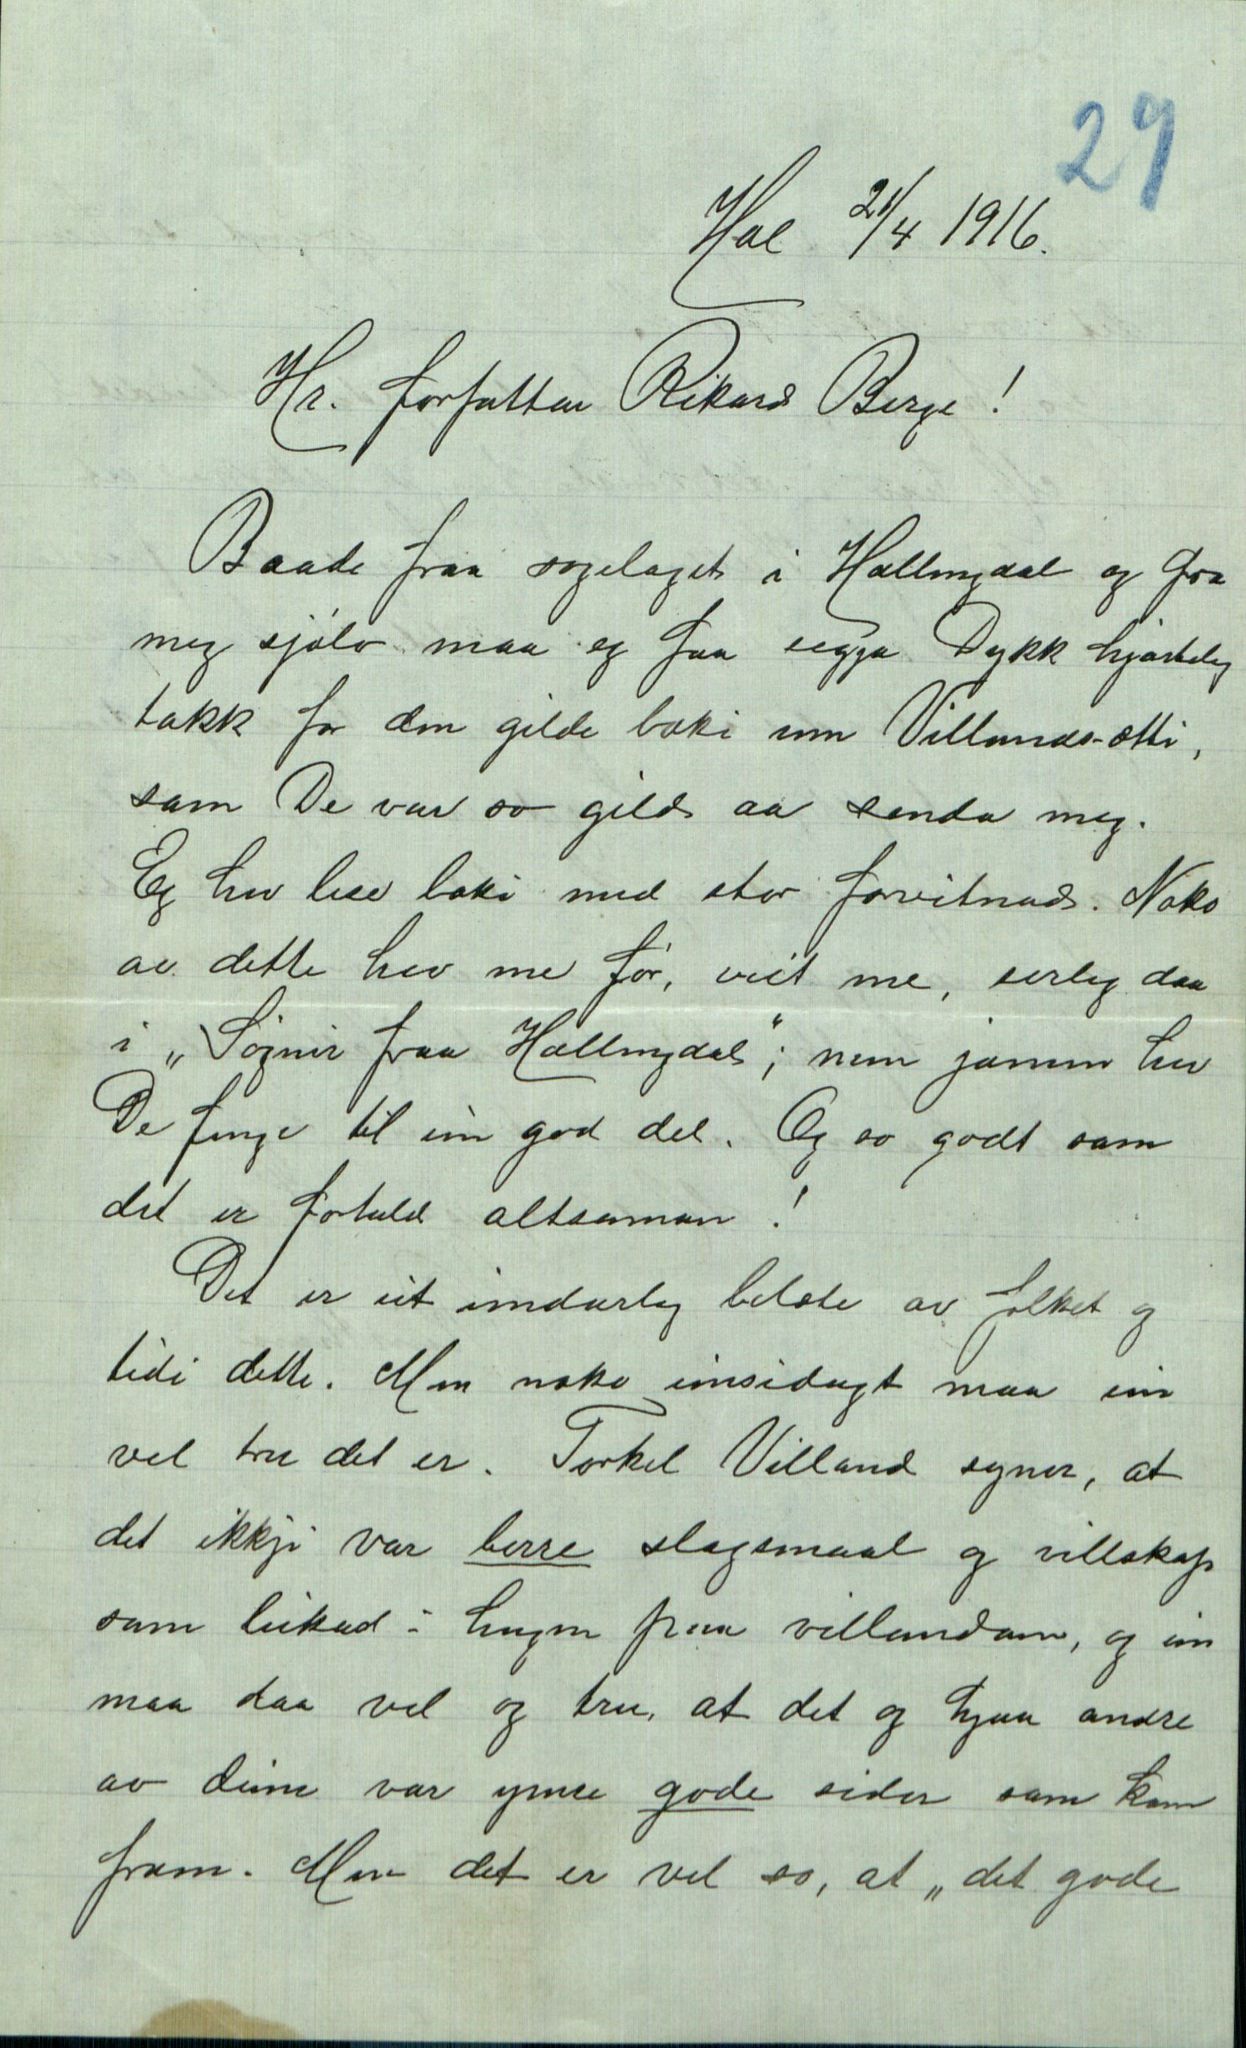 29
Hol 21/4 1916.
Hr. forfattar Rikard Berge!
Baade fraa sogelaget i Hallingdal og fra
meg sjølv maa eg faa segja Dykk hjarteleg
takk for den gilde boki um Villands-ætti,
som De var so gild aa senda meg.
Eg hev lese boki med stor forvitnad. Noko
av dette hev me før, veit me, serleg daa
i „Søgnir fraa Hallingdal“; men jamen hev
De funge til ein god del. Og so godt som
det er fortald altsaman!
Det er eit underleg belæte av folket og
tidi dette. Men noko einsidugt maa ein
vel tru det er. Torkel Villand syner, at
det ikkji var berre slagsmaal og villskap
som leikad i hugen paa villandann, og ein
maa daa vel og tru, at det og hjaa andre
av deim var ymse gode sider som kom
fram. Men det er vel so, at „det gode